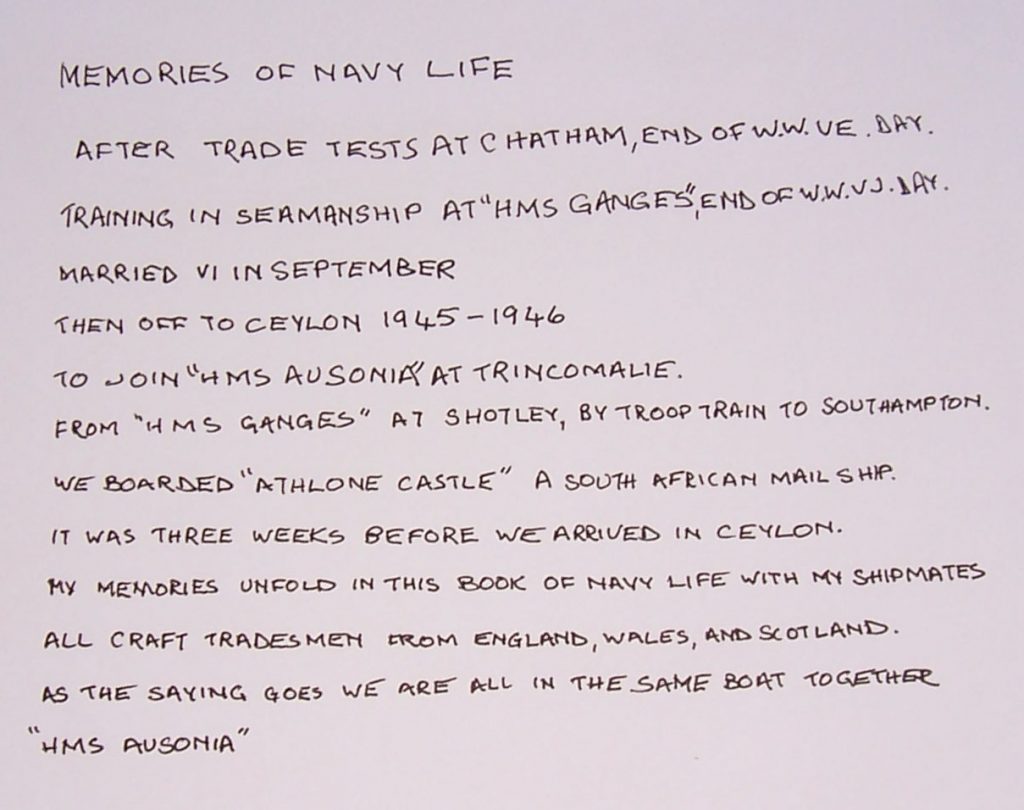 MEMORIES OF NAVY LIFE
AFTER TRADE TESTS AT CHATHAM, END OF W.W. VE. DAY.
TRAINING IN SEAMANSHIP AT "HMS GANGES", END OF W.W. VJ. DAY.
MARRIED VI IN SEPTEMBER
THEN OFF TO CEYLON 1945-1946
TO JOIN "HMS AUSONIA" AT TRINCOMALIE.
FROM "HMS GANGES" AT SHOTLEY, BY TROOP TRAIN TO SOUTHAMPTON.
WE BOARDED "ATHLONE CASTLE" A SOUTH AFRICAN MAIL SHIP.
IT WAS THREE WEEKS BEFORE WE ARRIVED IN CEYLON.
MY MEMORIES UNFOLD IN THIS BOOK OF NAVY LIFE WITH MY SHIPMATES
ALL CRAFT TRADESMEN FROM ENGLAND, WALES, AND SCOTLAND.
AS THE SAYING GOES WE ARE ALL IN THE SAME BOAT TOGETHER
"HMS AUSONIA"